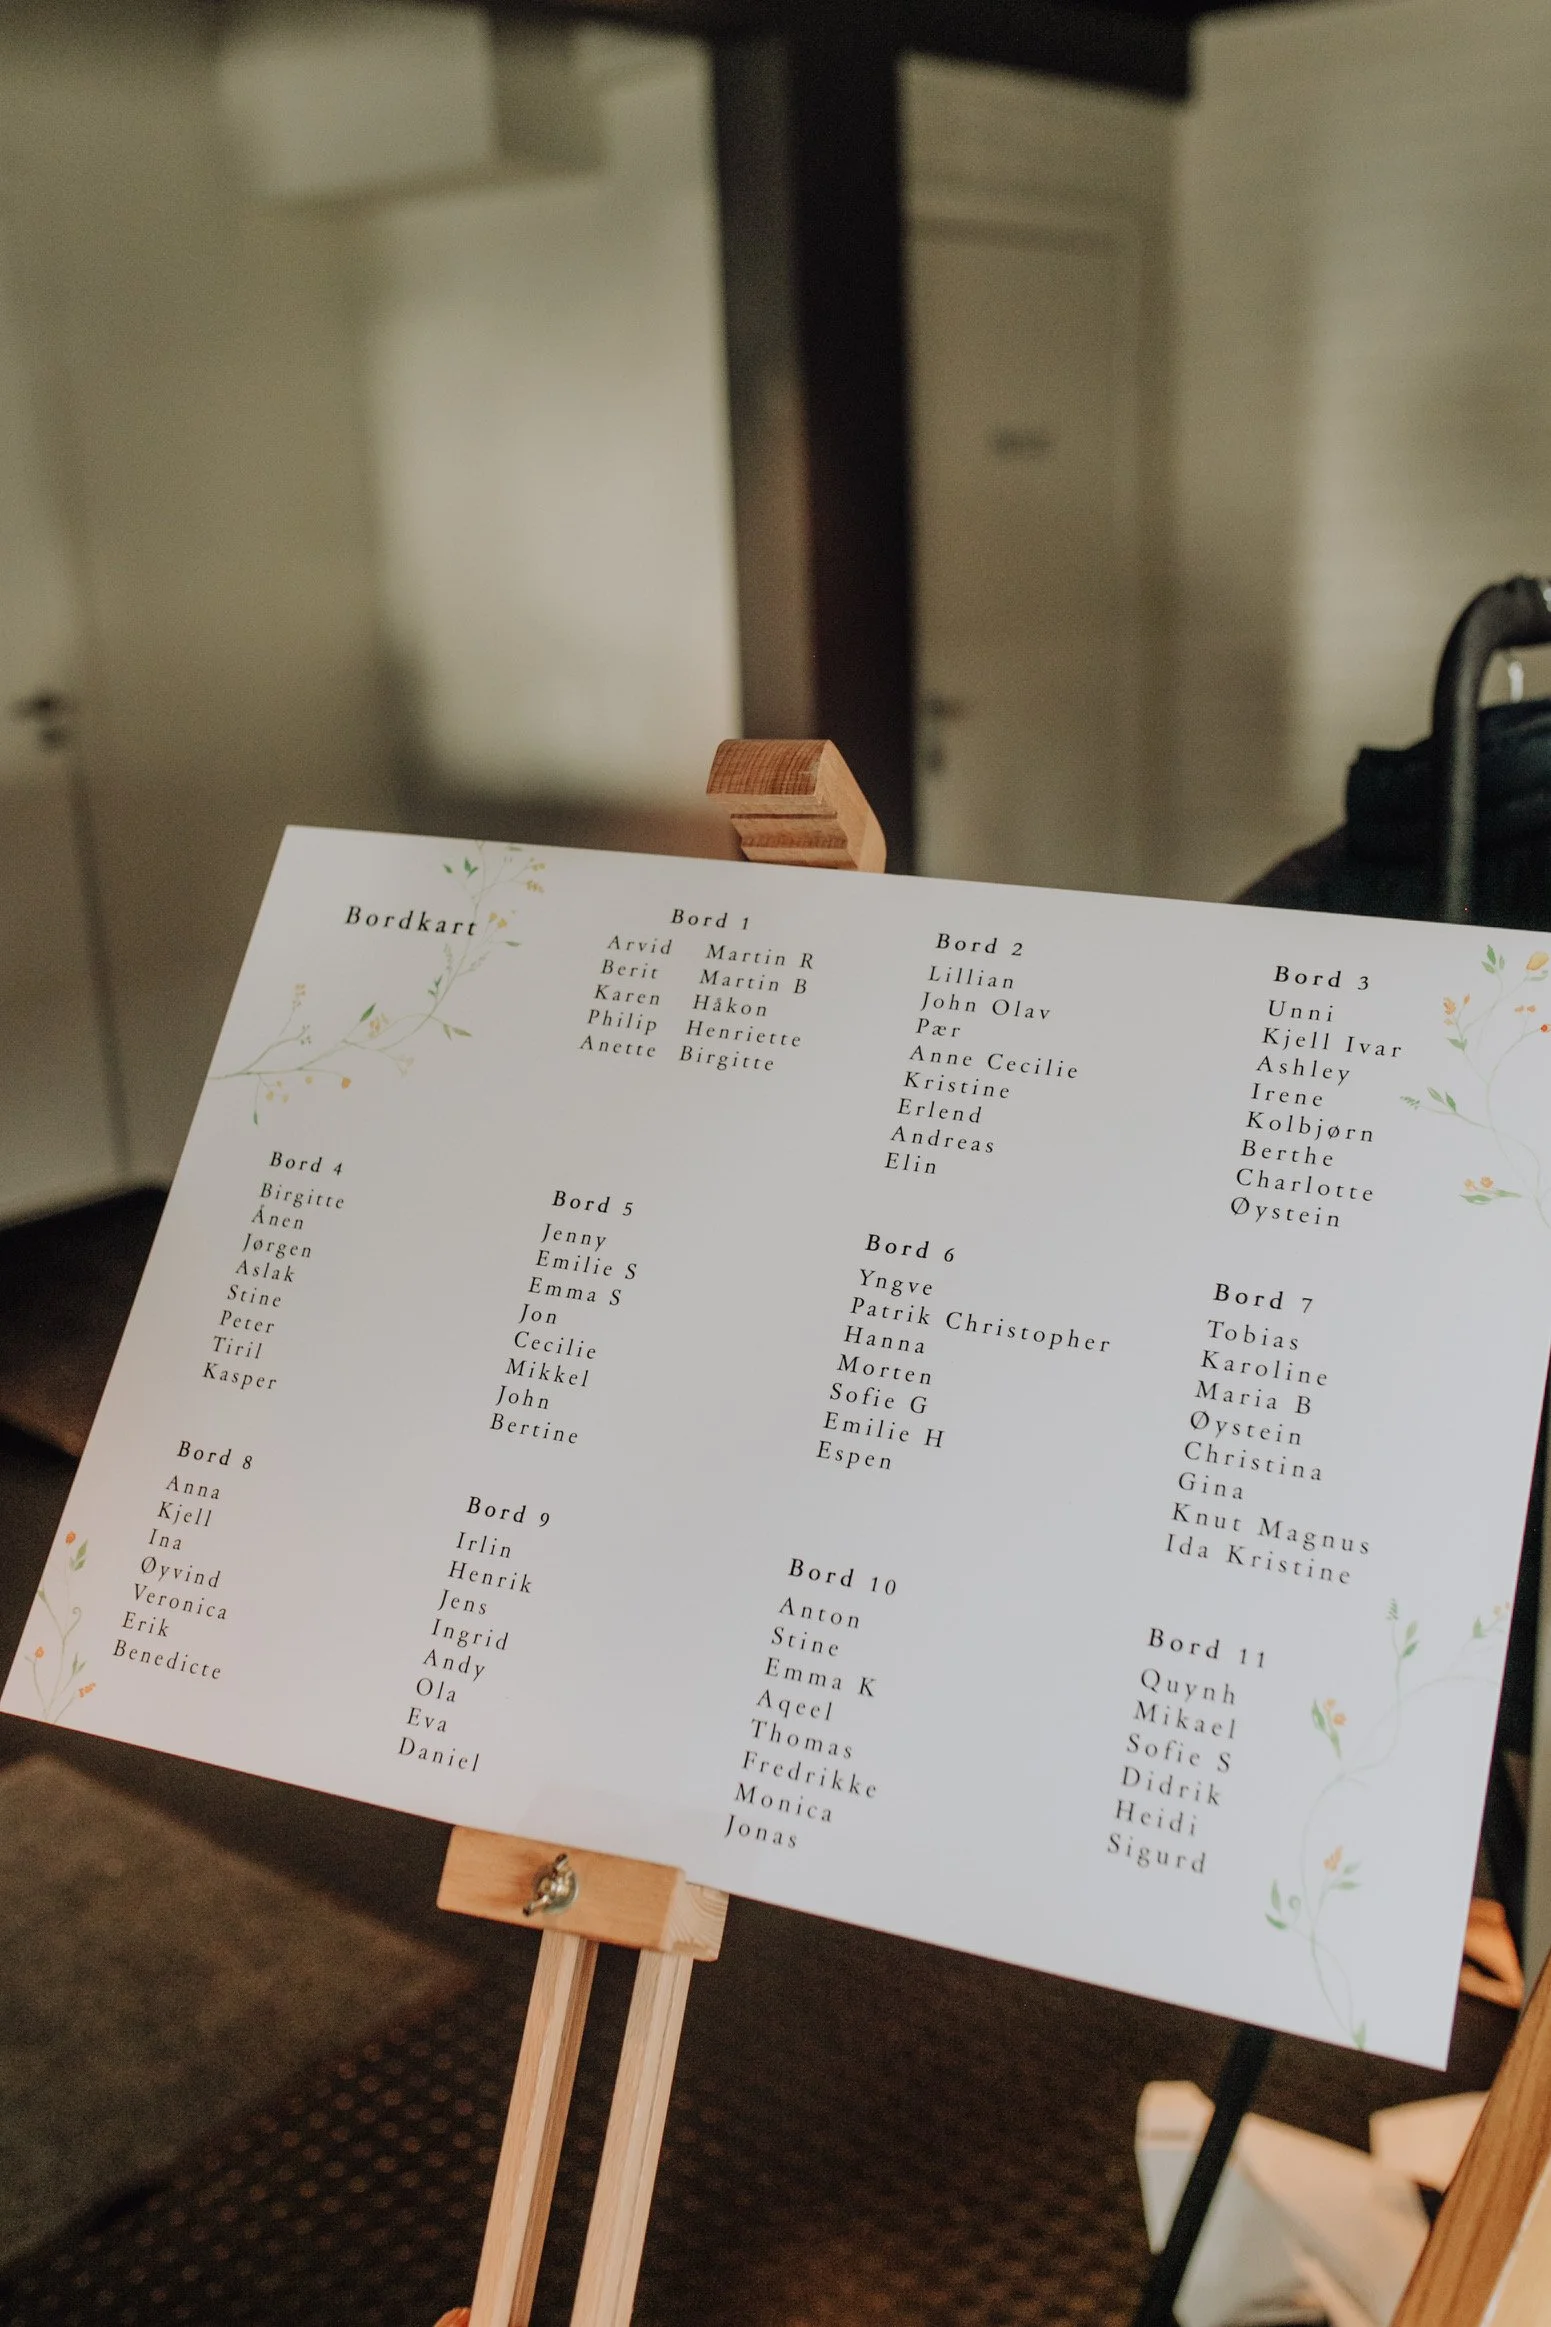 Bordkart
Bord 1
Arvid Martin R
Berit Martin B
Karen Håkon
Philip Henriette
Anette Birgitte
Bord 2
Lillian
John Olav
Pær
Anne Cecilie
Kristine
Erlend
Andreas
Elin
Bord 3
Unni
Kjell Ivar
Ashley
Irene
Kolbjørn
Berthe
Charlotte
Øystein
Bord 4
Birgitte
Ånen
Jørgen
Aslak
Stine
Peter
Tiril
Kasper
Bord 5
Jenny
Emilie S
Emma S
Jon
Cecilie
Mikkel
John
Bertine
Bord 6
Yngve
Patrik Christopher
Hanna
Morten
Sofie G
Emilie H
Espen
Bord 7
Tobias
Karoline
Maria B
Øystein
Christina
Gina
Knut Magnus
Ida Kristine
Bord 8
Anna
Kjell
Ina
Øyvind
Veronica
Erik
Benedicte
Bord 9
Irlin
Henrik
Jens
Ingrid
Andy
Ola
Eva
Daniel
Bord 10
Anton
Stine
Emma K
Aqeel
Thomas
Fredrikke
Monica
Jonas
Bord 11
Quynh
Mikael
Sofie S
Didrik
Heidi
Sigurd